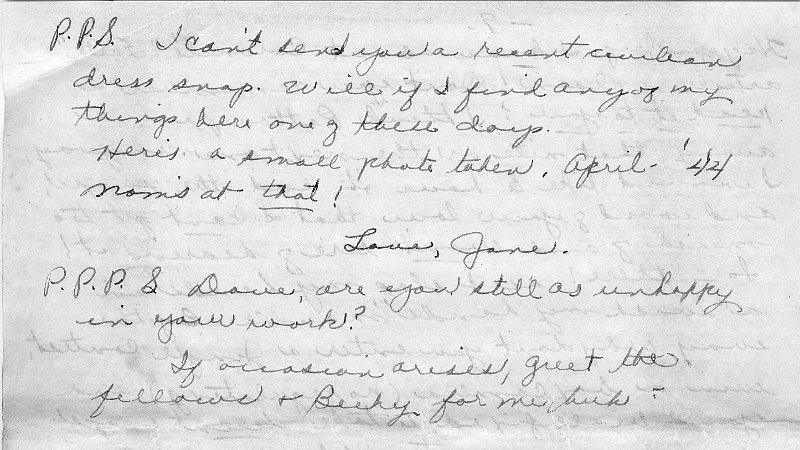 P.P.S. I can't send you a recent civilian
dress snap. Will if I find any of my
things here one of these days.
Here's a small photo taken, April - '44
Mom's at that!
Love, Jane.
P.P.P.S Dave, are you still as unhappy
in your work?
If occasion arises, greet the
fellows + Becky for me, huh -